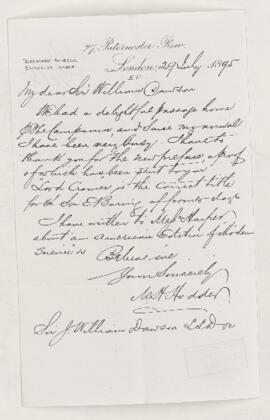 27, Paternoster Row,
London: 29 July 1895
E.C.
My dear Sir William Dawson
We had a delightful passage home
p the Campania and since my arrival
I have been very busy. I have to
thank you for the new preface, a proof
of which has been sent to you.
"Lord Cromer" is the correct title
for Sir E Baring of former days
I have written to Mess Harper
about an American Edition of Modern
Science &c
Believe me
Yours Sincerely
M H Hodder
Sir J. William Dawson LLD &c